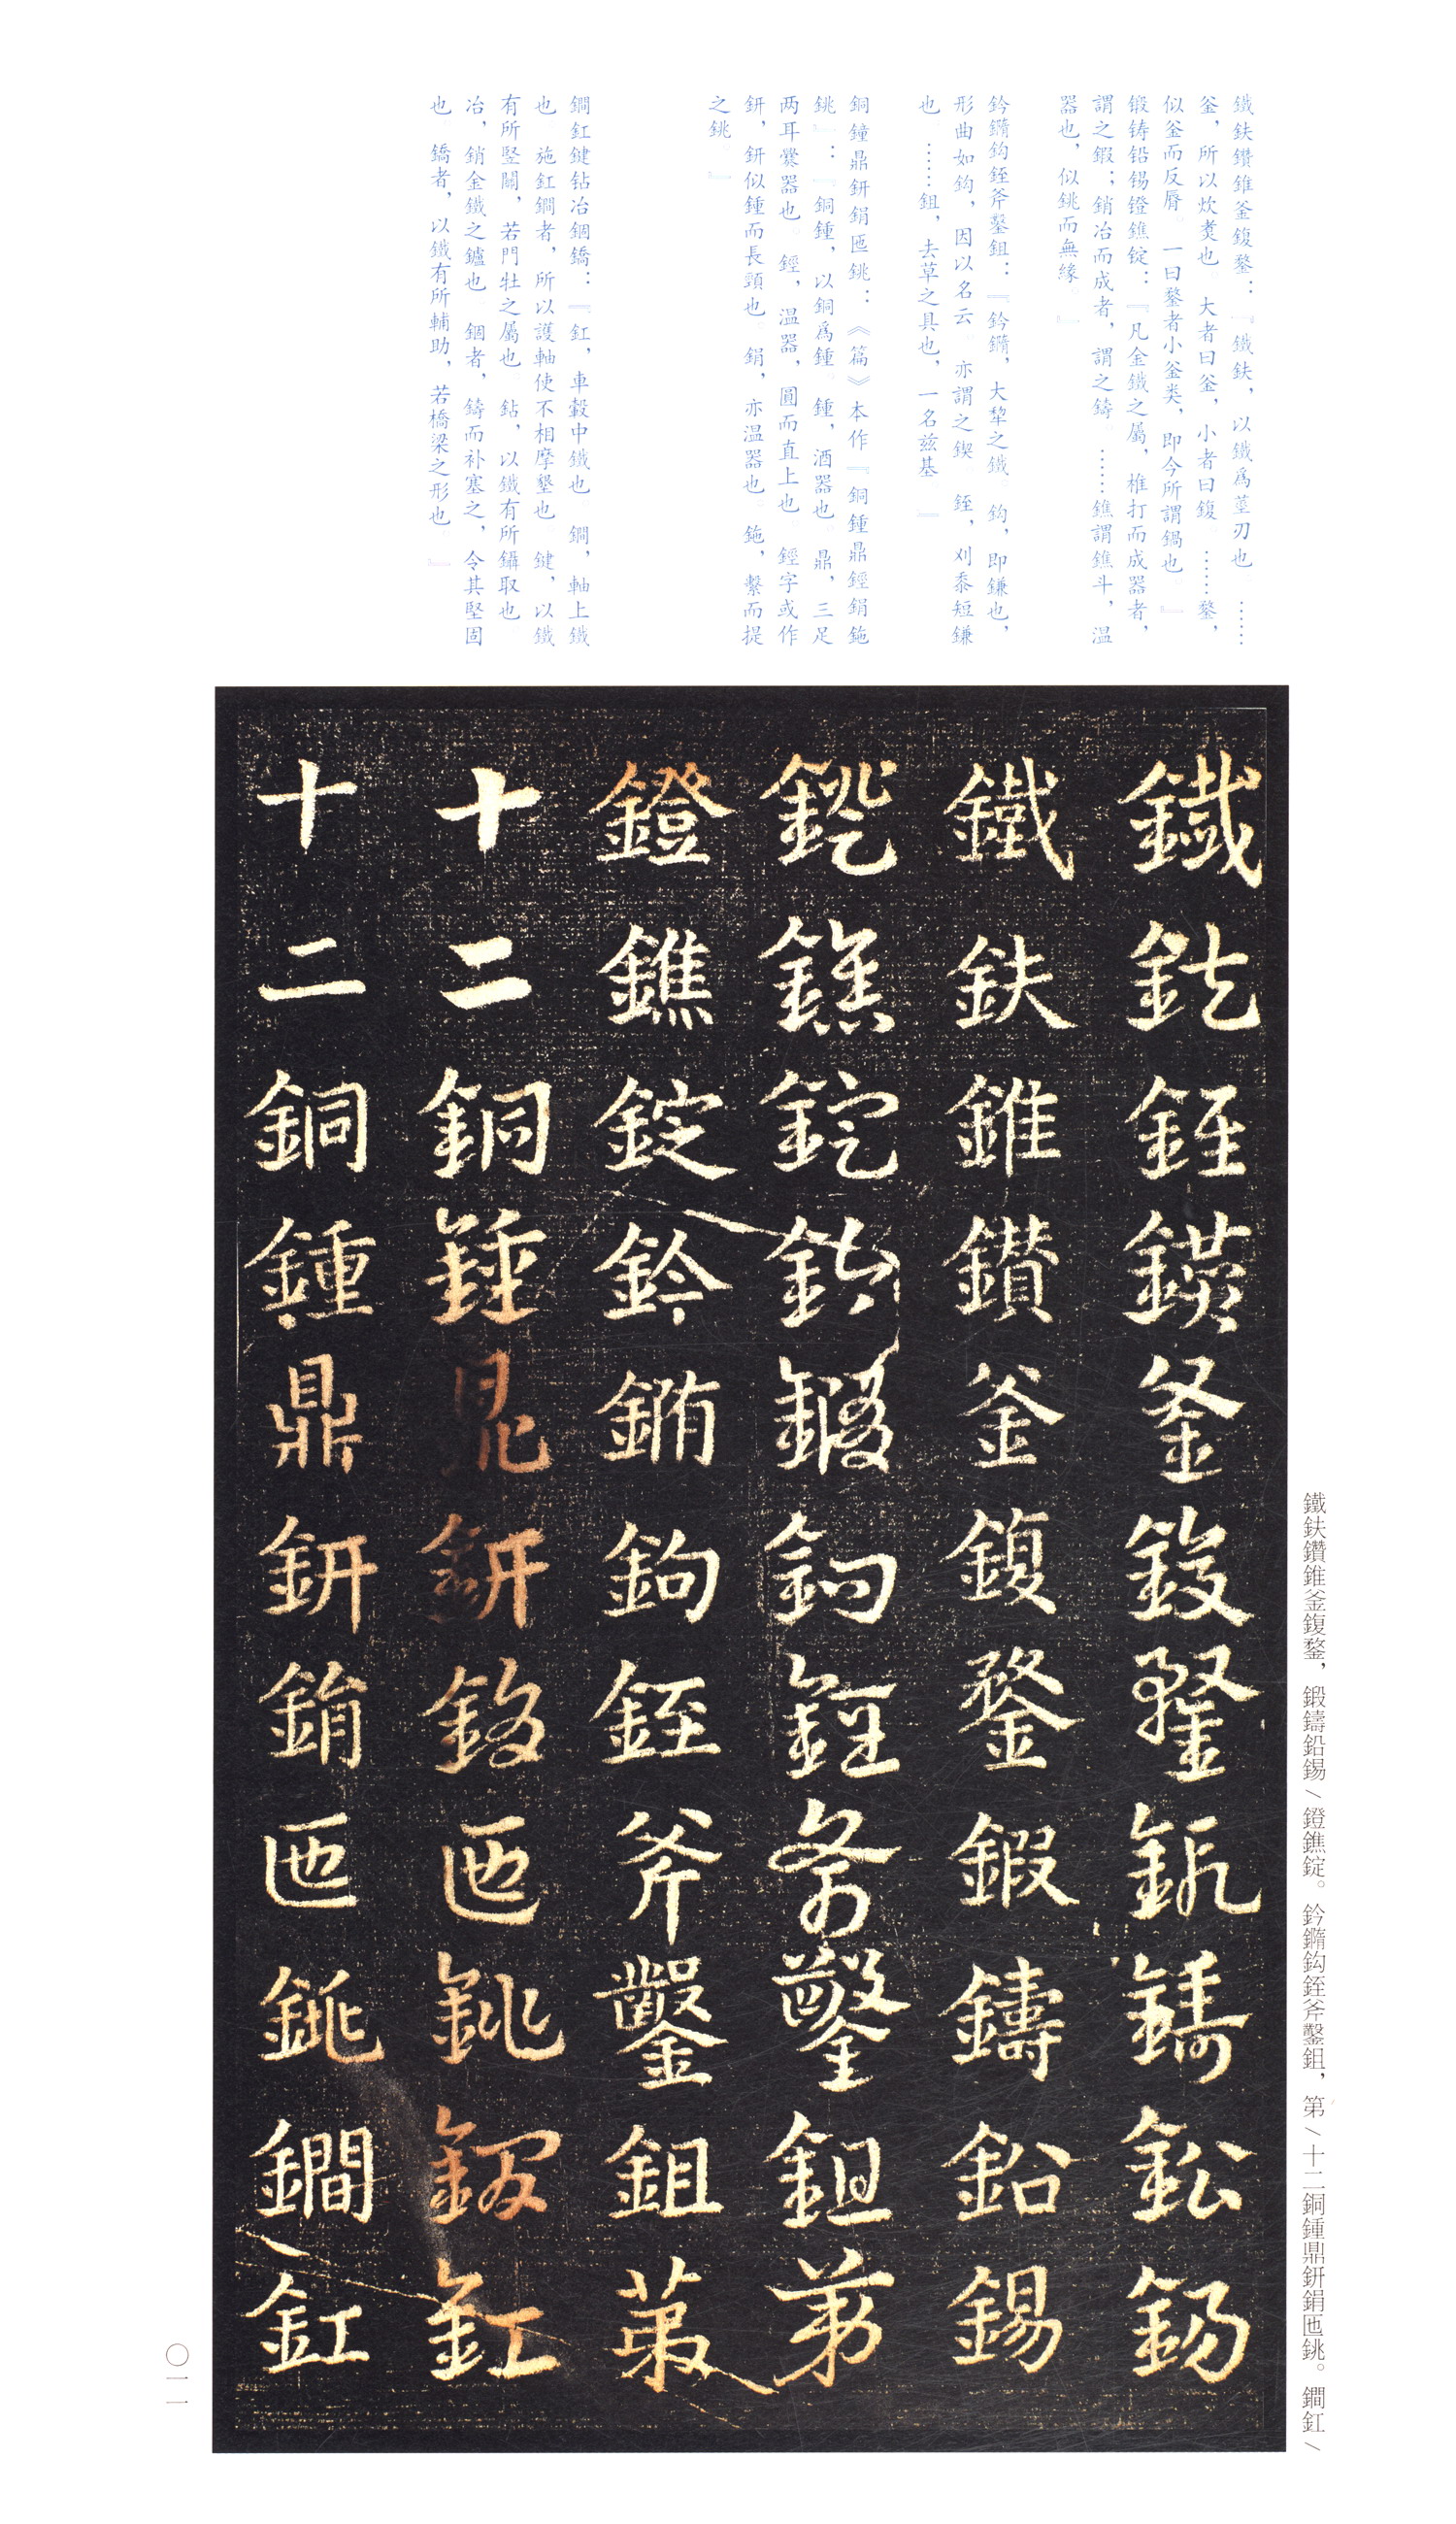 鐵鈇鑽錐釜鍑鍪：『鐵鈇，以鐵爲莖刃也。……
釜，所以炊煑也。大者曰釜，小者曰鍑。……鍪，
似釜而反脣。一曰鍪者小釜类，即今所謂鍋也。』
鍛铸铅锡镫鐎锭：『凡金鐵之屬，椎打而成器者，
謂之鍛；銷冶而成者，謂之鑄。……鐎謂鐎斗，温
器也，似銚而無緣。』
鈐鐫鈎銍斧鑿鉏：『鈐鐫，大犂之鐵。鈎，即鐮也，
形曲如鈎，因以名云。亦謂之鍥。銍，刈黍短鐮
也。……鉏，去草之具也，一名兹基。』
銅鐘鼎鈃鋗匜銚：《篇》本作『銅鍾鼎鋞鋗鉇
銚』：『銅鍾，以銅爲鍾。鍾，酒器也。鼎，三足
两耳爨器也。鋞，温器，圓而直上也。鋞字或作
鈃，鈃似鍾而長頸也。鋗，亦温器也。鉇，繫而提
之銚。』
鐧釭鍵钻冶錮鐈：『釭，車轂中鐵也。鐧，軸上鐵
也。施釭鐧者，所以護軸使不相摩墾也。鍵，以鐵
有所竪關，若門牡之屬也。鉆，以鐵有所鑷取也。
冶，銷金鐵之鑪也。錮者，鑄而补塞之，令其堅固
也。鐈者，以鐵有所輔助，若橋梁之形也。』
鐵鈇錐鑽釜鍑鍪鍛鑄鉛錫
鐵鈇錐鑽釜鍑鍪鍛鑄鉛錫
鐙鐎錠鈐鐫鉤銍斧鑿鉏第
鐙鐎錠鈐鐫鉤銍斧鑿鉏第
十二銅鍾鼎鈃鋗匜銚鐧釭
十二銅鍾鼎鈃鋗匜銚鐧釭
鐵鈇鑽錐釜鍑鍪，鍛鑄鉛錫/鐙鐎錠。鈐鐫鈎銍斧鑿鉏，第/十二銅鍾鼎鈃鋗匜銚。鐧釭/
〇一一